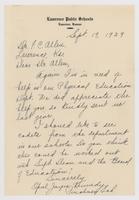 Lawrence Public Schools
Lawrence, Kansas
Sept 19, 1929
Dr. F. C. Allen
Lawrence, Ks
Dear Dr. Allen,
Again I'm in need of
help in our Physical Education
Dept. We did appreciate the
help you so kindly sent us
last year.
I should like to see
cadets from the department
in our schools. So you think
this could be worked out
with Supt. and the Board
of Education?
Sincerely,